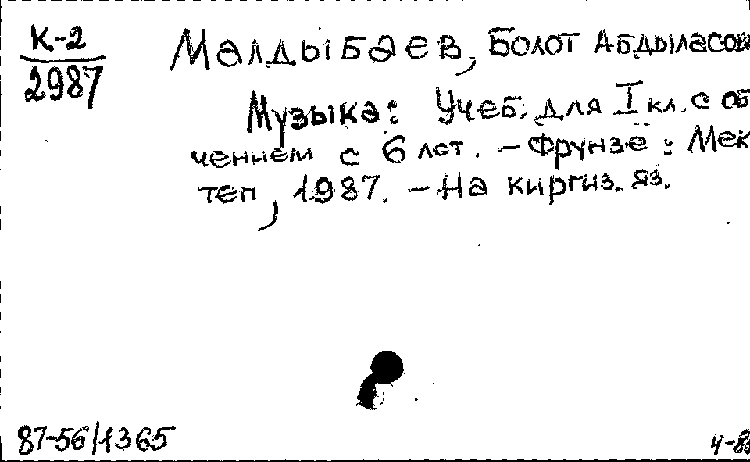 К-2
2987
Малдыбаев, Болот Абдыласов
Музыка: Учеб. для I кл. с об
чением с 6 лет. – Фрунзе : Мек
теп, 1987. – На киргиз. яз.
87-56/1365